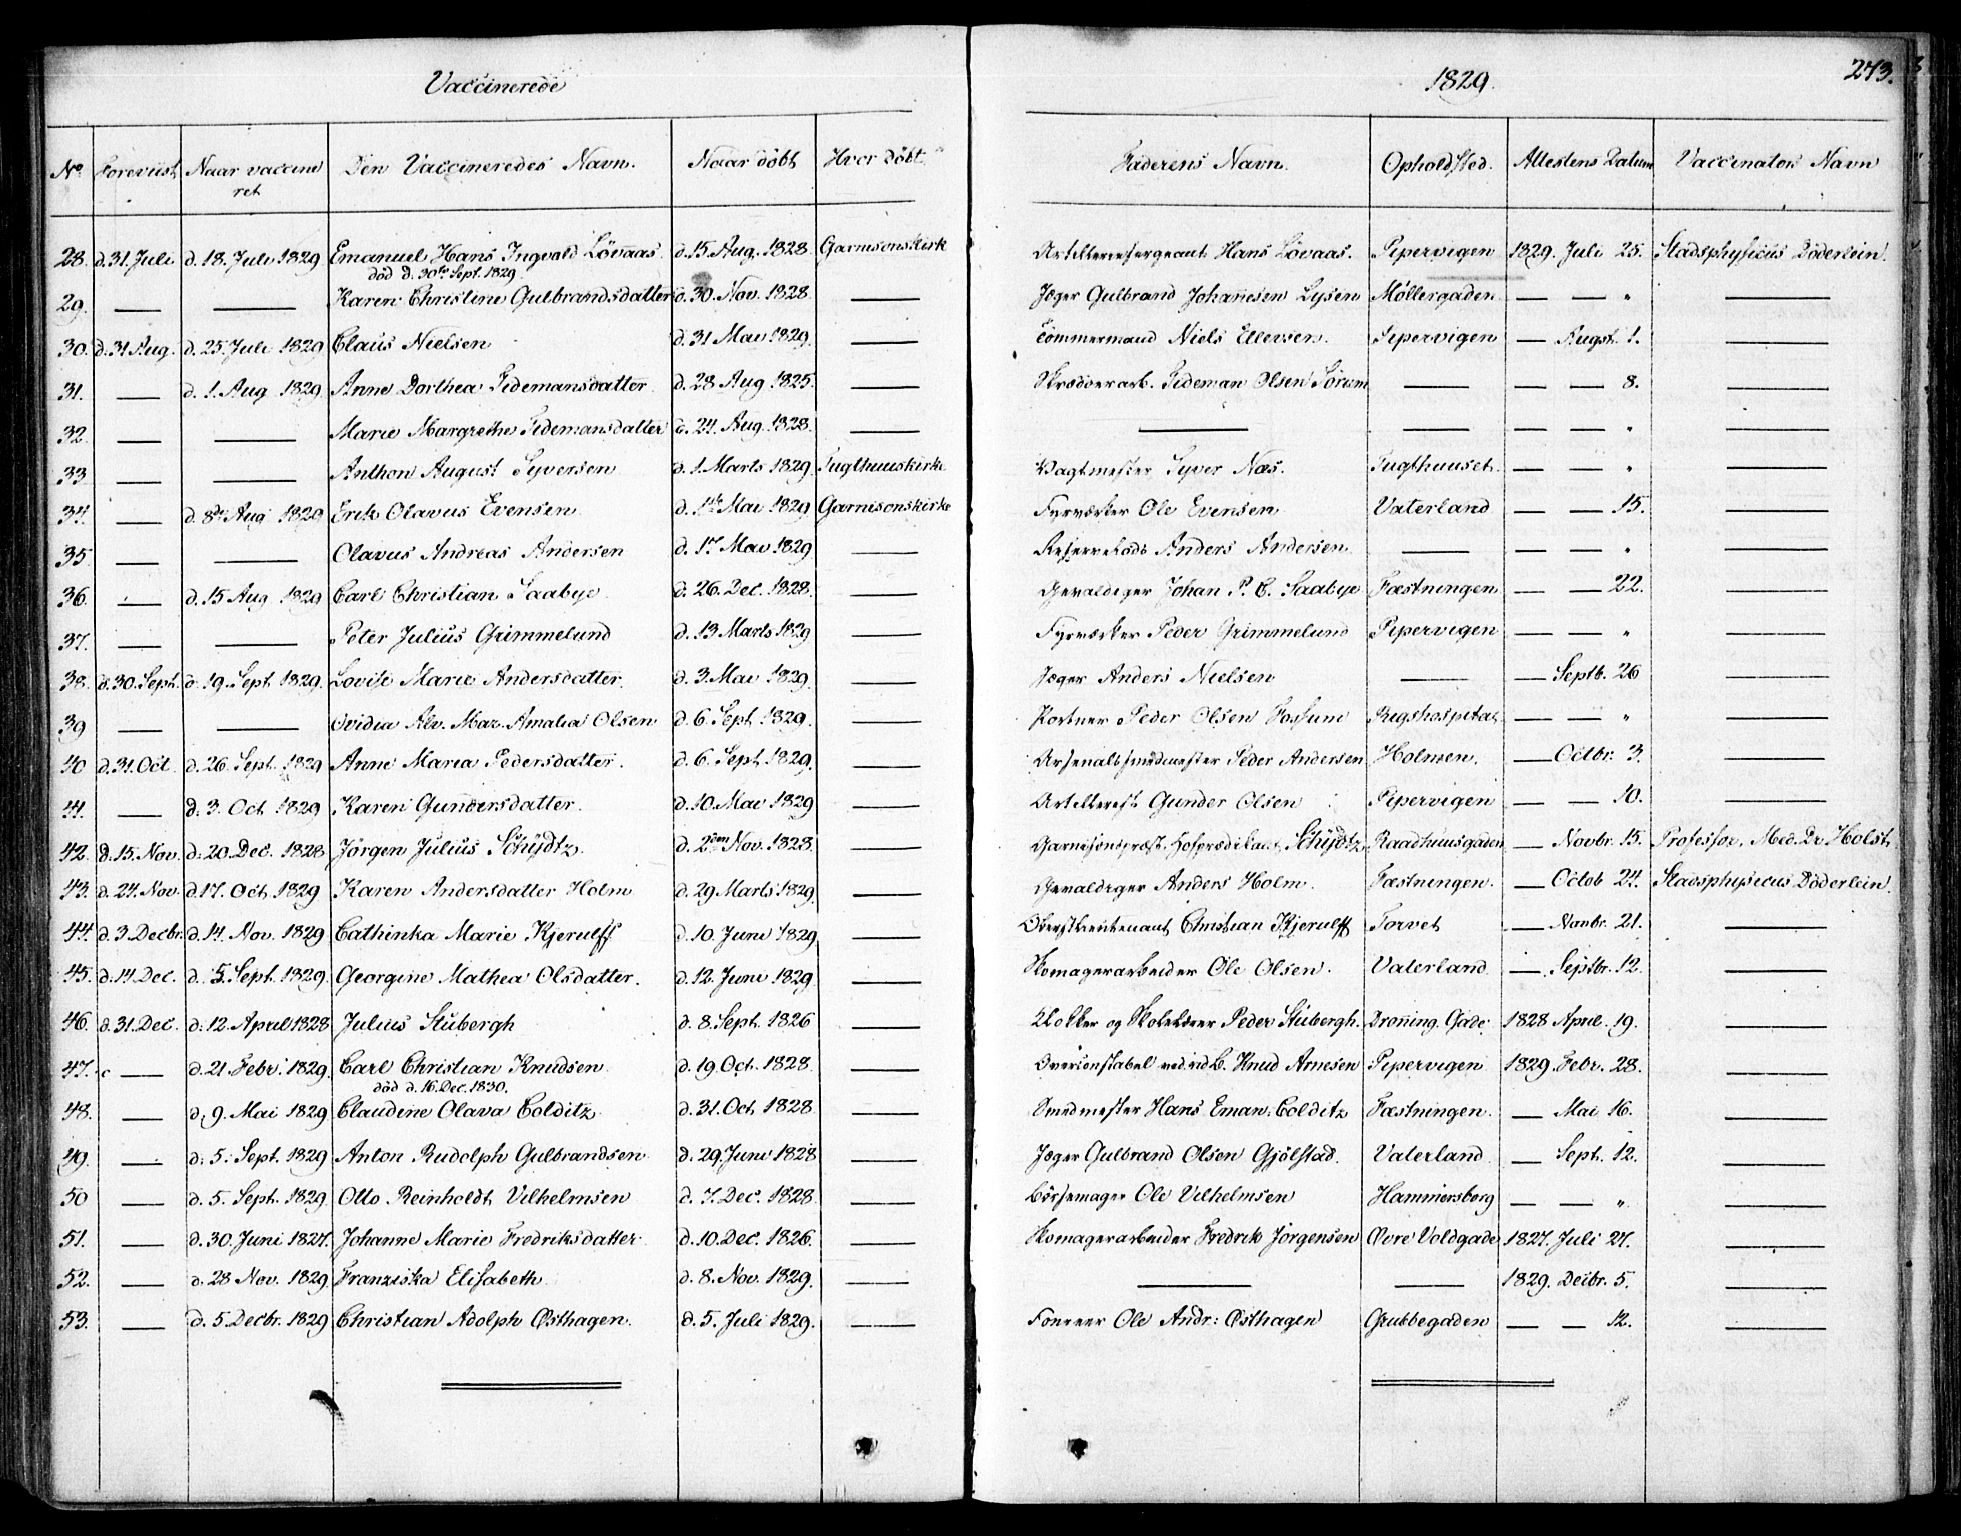 Vaccinerede
1829.
273.
No. Foreviist Naar vaccineret Den Vaccineredes Navn. Naar döbt Hvor döbt. Faderens Navn. Opholdsted. Attestens Datum Vaccinators Navn
28. d. 31 Juli d. 18. Juli 1829 Emanuel Hans Ingvald Lövaas. d. 15. Aug. 1828 Garnisonskirk Artilleriesergeant Hans Lövaas. Pipervigen 1829. Juli 25. Stadsphysicus Döderlein.
död d. 30te Sept. 1829.
29. — — Karen Christine Gulbrandsdatter d. 30. Nov. 1828. — Jæger Gulbrand Johannesen Lysen Møllergaden — — " —
30. d. 31 Aug. d. 25. Juli 1829 Claus Nielsen d. 31 Mai 1829. — Tömmermand Niels Ellevsen. Pipervigen — Augst. 1. —
31. — d. 1. Aug 1829 Anne Dorthea Tidemansdatter d. 28 Aug 1825. — Skrædderarb. Tideman Olsen Sörum — — — 8. —
32. — — Marie Margrethe Tidemansdatter d. 24. Aug. 1828. — — — — — " —
33 — — Anthon August Syversen d. 1. Marts 1829. Tugthuuskirke Vagtmester Syver Næs. Tugthuuset. — — " —
34. — d. 8de Aug 1829 Erik Olavus Evensen d. 1te Mai 1829 Garnisonskirke Fyrværker Ole Evensen Vaterland — — 15. —
35. — — Olavus Andreas Andersen d. 17 Mai 1829 — Anders Andersen. — — — " —
36. — d. 15 Aug 1829 Carl Christian Saabye d. 26. Dec. 1828. — Gevaldiger Johan P. C. Saabye Fæstningen — — 22. —
37. — — Peter Julius Grimmelund d. 13 Marts 1829 — Fyrværker Peder Grimmelund Pipervigen — — " —
38. d. 30. Sept. d. 19. Sept. 1829. Lovise Marie Andersdatter. d. 3. Mai 1829. — Jæger Anders Nielsen — — Septb. 26 —
39 — — Ovidia Alv. Mar. Amalia Olsen d. 6. Sept. 1829. — Portner Peder Olsen Fossum Rigshospital — — " —
40 d. 31. Oct. d. 26. Sept. 1829 Anne Maria Pedersdatter. d. 6. Sept 1829. — Arsenalssmedmester Peder Andersen Holmen. — Octbr. 3. —
41. — d. 3. Oct 1829 Karen Gundersdatter. d. 10. Mai 1829 — Artillerist Gunder Olsen Pipervigen — — 10. —
42. d. 15. Nov. d. 20. Dec. 1828 Jörgen Julius Schijdtz d. 2den Nov. 1828. — Garnisonspræst, Hofprædikant Schijdtz Raadhuusgaden — Novbr. 15. Professor, Med. Dr Holst
43. d. 24. Nov. d. 17. Oct 1829 Karen Andersdatter Holm d. 29 Marts 1829. — Gevaldiger Anders Holm. Fæstningen. — Octob 24. Stadsphysicus Döderlein.
44. d. 3. Decbr. d. 14. Nov. 1829 Cathinka Marie Kjerulff d. 10. Juni 1829 — Oberstlieutenant Christian Kjerulff Torvet — Novbr. 21. —
45. d. 14 Dec. d. 5. Sept. 1829. Georgine Mathea Olsdatter. d. 12. Juni 1829 — Skomagerarbeider Ole Olsen. Vaterland — Septbr. 12. —
46. d. 31. Dec. d. 12. April 1828 Julius Stubergh d. 8. Sept. 1826 — Klokker og Skolelærer Peder Stubergh. Dronning. Gade 1828 April. 19. —
47. — d. 21. Febr. 1829. Carl Christian Knudsen d. 19 Oct. 1828. — Overconstabel Knud Arnesen Pipervigen 1829. Febr. 28. —
död d. 16. Dec. 1830.
48. — d. 9. Mai 1829 Claudine Olava Colditz d. 31. Oct 1828. — Smedmester Hans Eman. Colditz Fæstningen. — Mai 16. —
49. — d. 5. Sept. 1829 Anton Rudolph Gulbrandsen d. 29. Juni 1828 — Jæger Gulbrand Olsen Gjölstad. Vaterland. — Sept. 12. —
50 — d. 5. Sept. 1829. Otto Reinholdt Vilhelmsen d. 7. Dec. 1828. — Börsemager Ole Vilhelmsen Hammersborg — — " —
51. — d. 30. Juni 1827. Johanne Marie Fredriksdatter d. 10. Dec. 1826. — Skomagerarbeider Fredrik Jörgensen Øvre Voldgade 1827. Juli 27. —
52. — d. 28 Nov. 1829. Franziska Elisabeth d. 8. Nov. 1829. — — — 1829. Decbr. 5. —
53. — d. 5. Decbr. 1829 Christian Adolph Østhagen. d. 5. Juli 1829. — Foureer Ole Andr: Østhagen Grubbegaden — — 12. —